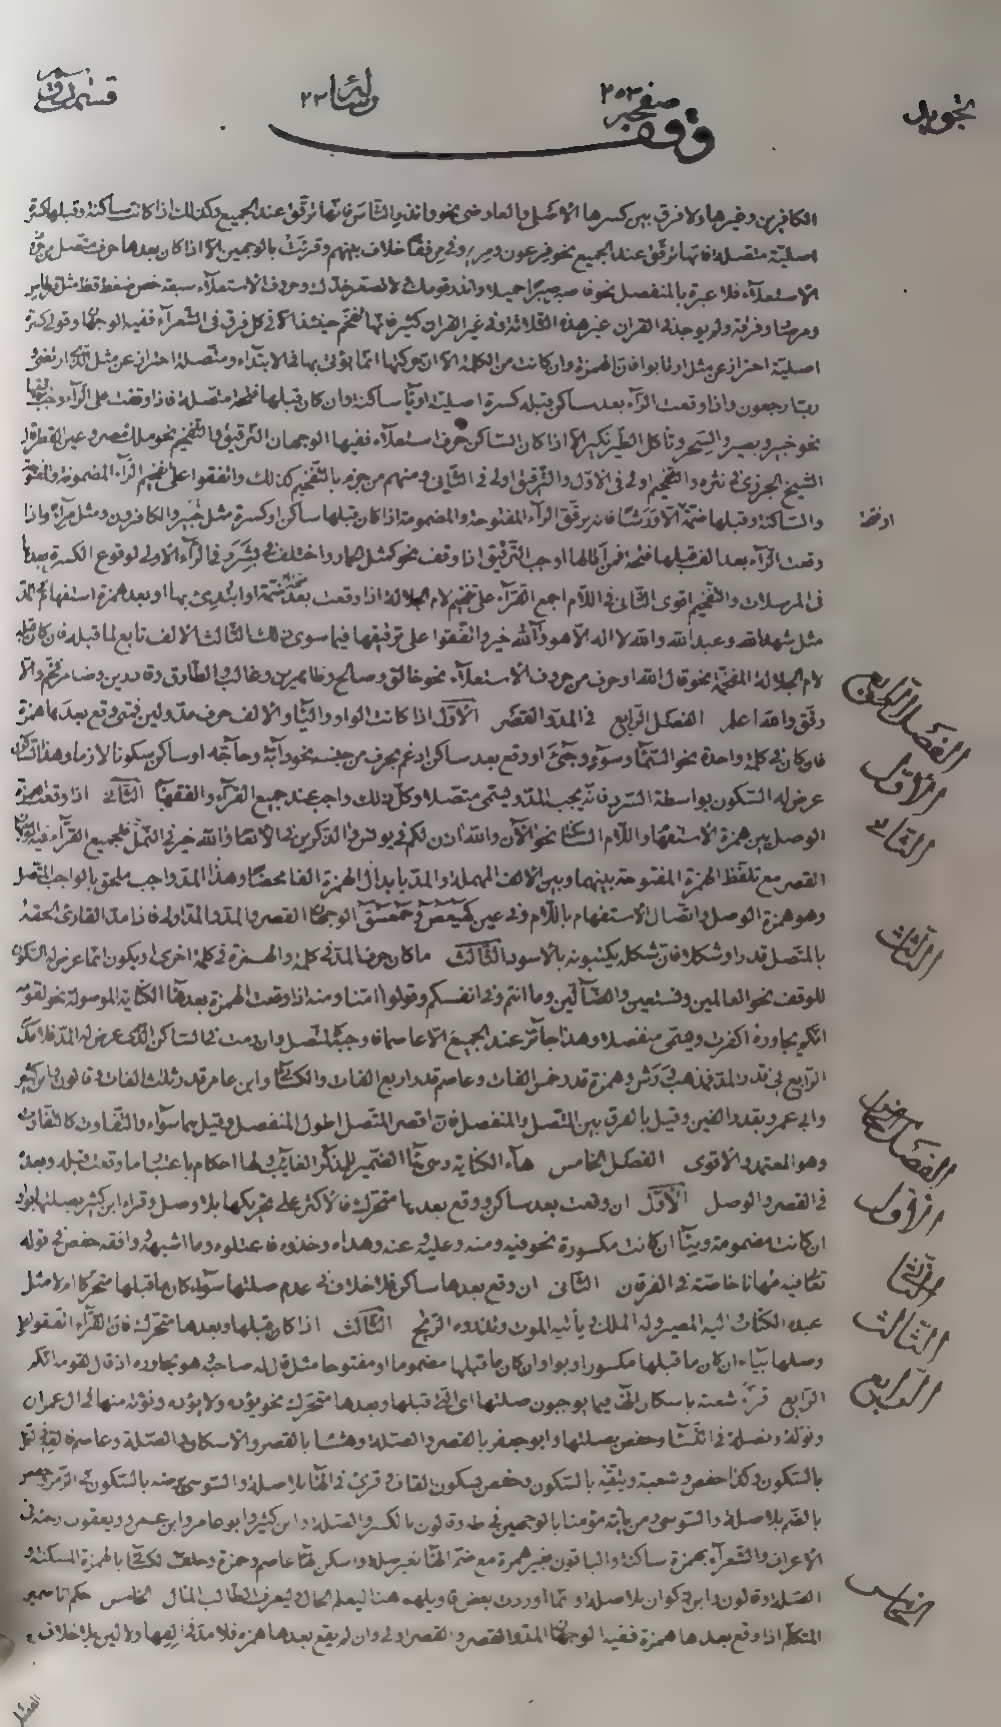 تجويد
صفحه ٢٥٣
رسائل ٢٣
وقف
الكافرين وغيرها ولا فرق بين كسرها الاصلى والعارضى نحو وانذر الناس فانها ترقق عند الجميع وكذلك اذا كانت ساكنة وقبلها كسرة
اصلية متصلة فانها ترقق عند الجميع نحو فرعون ومرية وفى مرفقا خلاف بينهم وقرئت بالوجهين الا اذا كان بعدها حرف متصل من حروف
الاستعلاء فلا عبرة بالمنفصل نحو فاصبر صبرا جميلا وانذر قومك ولا تصعر خدك وحروف الاستعلاء سبعة خص ضغط قظ مثل قرطاس
ومرصادا وفرقة ولم يوجد فى القران غير هذه الثلاثة وفى غير القران كثيرة فانها تفخم حينئذ الا فى كل فرق فى الشعراء ففيه الوجهان وقولى كسرة
اصلية احتراز عن مثل ارتابوا فان الهمزة وان كانت من الكلمة الا ان حركتها انما يؤتى بها فى الابتداء ومتصلة احتراز عن مثل لمن ارتضى
رب ارجعون واذا وقعت الراء بعد ساكن قبله كسرة اصلية او ياء ساكنة وان كان قبلها فتحة متصلة فاذا وقفت على الراء وجب ترقيقها
نحو خبير وبصير والسحر وتأكل الطير نكير الا اذا كان الساكن حرف استعلاء ففيها الوجهان الترقيق والتفخيم نحو ملك مصر وعين القطر قال
الشيخ الجزرى فى نشره والتفخيم اولى فى الاول والترقيق اولى فى الثانى ومنهم من جزم بالتفخيم كذلك واتفقوا على تفخيم الراء المضمومة والمفتوحة
والساكنة وقبلها ضمة الا ورشا فانه يرقق الراء المفتوحة والمضمومة اذا كان قبلها ساكن او كسرة مثل خبير والكافرون ومثل مرآء واذا
وقعت الراء بعد الف قبلها فتحة فمن امالها اوجب الترقيق اذا وقف نحو كمثل الحمار واختلف فى بشرر فى الراء الاولى لوقوع الكسرة بعدها
فى المرسلات والتفخيم اقوى الثانى فى اللام اجمع القراء على تفخيم لام الجلالة اذا وقعت بعد فتحة او ضمة او ابتدئ بها او بعد همزة استفهام
مثل شهد الله وعبد الله والله لا اله الا هو وآلله خير واتفقوا على ترقيقها فيما سوى ذلك الثالث الالف تابع لما قبله فان كان قبله
لام الجلالة المفخمة نحو قال الله او حرف من حروف الاستعلاء نحو خالق وصالح وظالمين وغالب والطارق وقادرين وضامر فخم والا
رقق والله اعلم الفصل الرابع فى المد والقصر الاول اذا كانت الواو والياء والالف حرف مد ولين فمتى وقع بعدها همزة
فان كان فى كلمة واحدة نحو السماء وسوء وجئ او وقع بعد ساكن ادغم بحرف من جنسه نحو دابة وحاجه او ساكن بسكون لازما وهذا
عرض له السكون بواسطة السرد فانه يجب المد ويسمى متصلا وكل ذلك واجب عند جميع القراء والفقهاء الثانى اذا وقعت همزة
الوصل بين همزة الاستفهام واللام الساكنة نحو الآن والله اذن لكم فى يونس والذكرين فى الانعام والله خير فى النمل فلجميع القراء فيه
القصر مع تلفظ الهمزة المفتوحة بينهما وبين الالف المهملة والمد بابدال الهمزة الفا محضا وهذا المد واجب ملحق بالواجب المتصل
وهو همزة الوصل واتصال الاستفهام باللام وفى عين كهيعص وحمعسق الوجهان القصر والمد والمد اولى فاذا مد القارئ الحقه
بالمتصل قدرا وشكلا فان شكله يكتبونه بالاسود الثالث ما كان حرف المد فى كلمة والهمزة فى كلمة اخرى او يكون انما عرض له السكون
للوقف نحو العالمين ونستعين والضآلين وما انتم وفى انفسكم وقولوا امنا ومنه اذا وقعت الهمزة بعد هاء الكناية الموصولة نحو لقومه
انكم يحاوره اكفرت ويسمى منفصلا وهذا جائز عند الجميع الا عاصما فاوجبه
الرابع فى قدر المد فمذهب ورش وهمزة قدر خمس الفات وعاصم قدر اربع الفات والكسائى وابن عامر قدر ثلاث الفات وقالون وابن كثير
وابى عمرو بقدر الفين وقيل بالفرق بين المتصل والمنفصل فان اقصر المتصل اطول المنفصل وقيل هما سواء والتفاوت كالتفاوت
وهو المعتمد والاقوى الفصل الخامس هاء الكناية وهى هاء الضمير للمذكر الغائب ولها احكام باعتبار ما وقعت قبله وبعده
فى القصر والوصل الاول ان وقعت بعد ساكن ووقع بعدها متحرك فالاكثر على تحريكها بلا وصل وقراءة ابن كثير بصلتها بواو
ان كانت مضمومة وبياء ان كانت مكسورة نحو فيه ومنه وعليه وعنه وهداه وخذوه فاعتلوه وما اشبهه ووافقه حفص فى قوله
تعالى فيه مهانا خاصة فى الفرقان الثانى ان وقع بعدها ساكن فلا خلاف فى عدم صلتها سواء كان ما قبلها متحركا ام لا مثل
عبده الكتاب اليه المصير وله الملك ويأتيه الموت وتذروه الريح الثالث اذا كان قبلها وبعدها متحرك فان القراء اتفقوا على
وصلها بياء ان كان ما قبلها مكسورا وبواو ان كان ما قبلها مضموما او مفتوحا مثل قال له صاحبه وهو يحاوره اذ قال لقومه انكم
الرابع قرأ شعبة باسكان الهاء فيما يوجبون صلتها اى التى قبلها وبعدها متحرك نحو يؤده ولا يؤده ونؤته منها فى ال عمران
ونوله ونصله فى النساء وحفص بصلتها وابو جعفر بالقصر والصلة وهشام بالقصر والاسكان والصلة وعاصم فالقه فى النمل
بالسكون وكذا حفص وشعبة ويتقه بالسكون وحفص بسكون القاف وقرئ فى الهاء بلا صلة والسوسى يرضه بالسكون فى الزمر وحفص
بالضم بلا صلة والسوسى ومن يأته مؤمنا بالوجهين فى طه وقالون بالكسر والصلة وابن كثير وابو عامر وابن عمرو ويعقوب ارجئه فى
الاعراف والشعراء بهمزة ساكنة والباقون بغير همزة مع ضم الهاء بغير صلة واسكن هاء عاصم وحمزة
الصلة وقالون وابن ذكوان بلا صلة وانما اوردت بعض هنا ليعلم الحال وليعرف الطالب المنال الخامس حكم انا ضمير
المتكلم اذا وقع بعدها همزة ففيه الوجهان المد والقصر والقصر اولى وان لم يقع بعدها همزة فلا مد فى الفها ولا لين بلا خلاف
الفصل الرابع
الاول
الثانى
الثالث
الرابع
الفصل الخامس
الاول
الثانى
الثالث
الرابع
الخامس